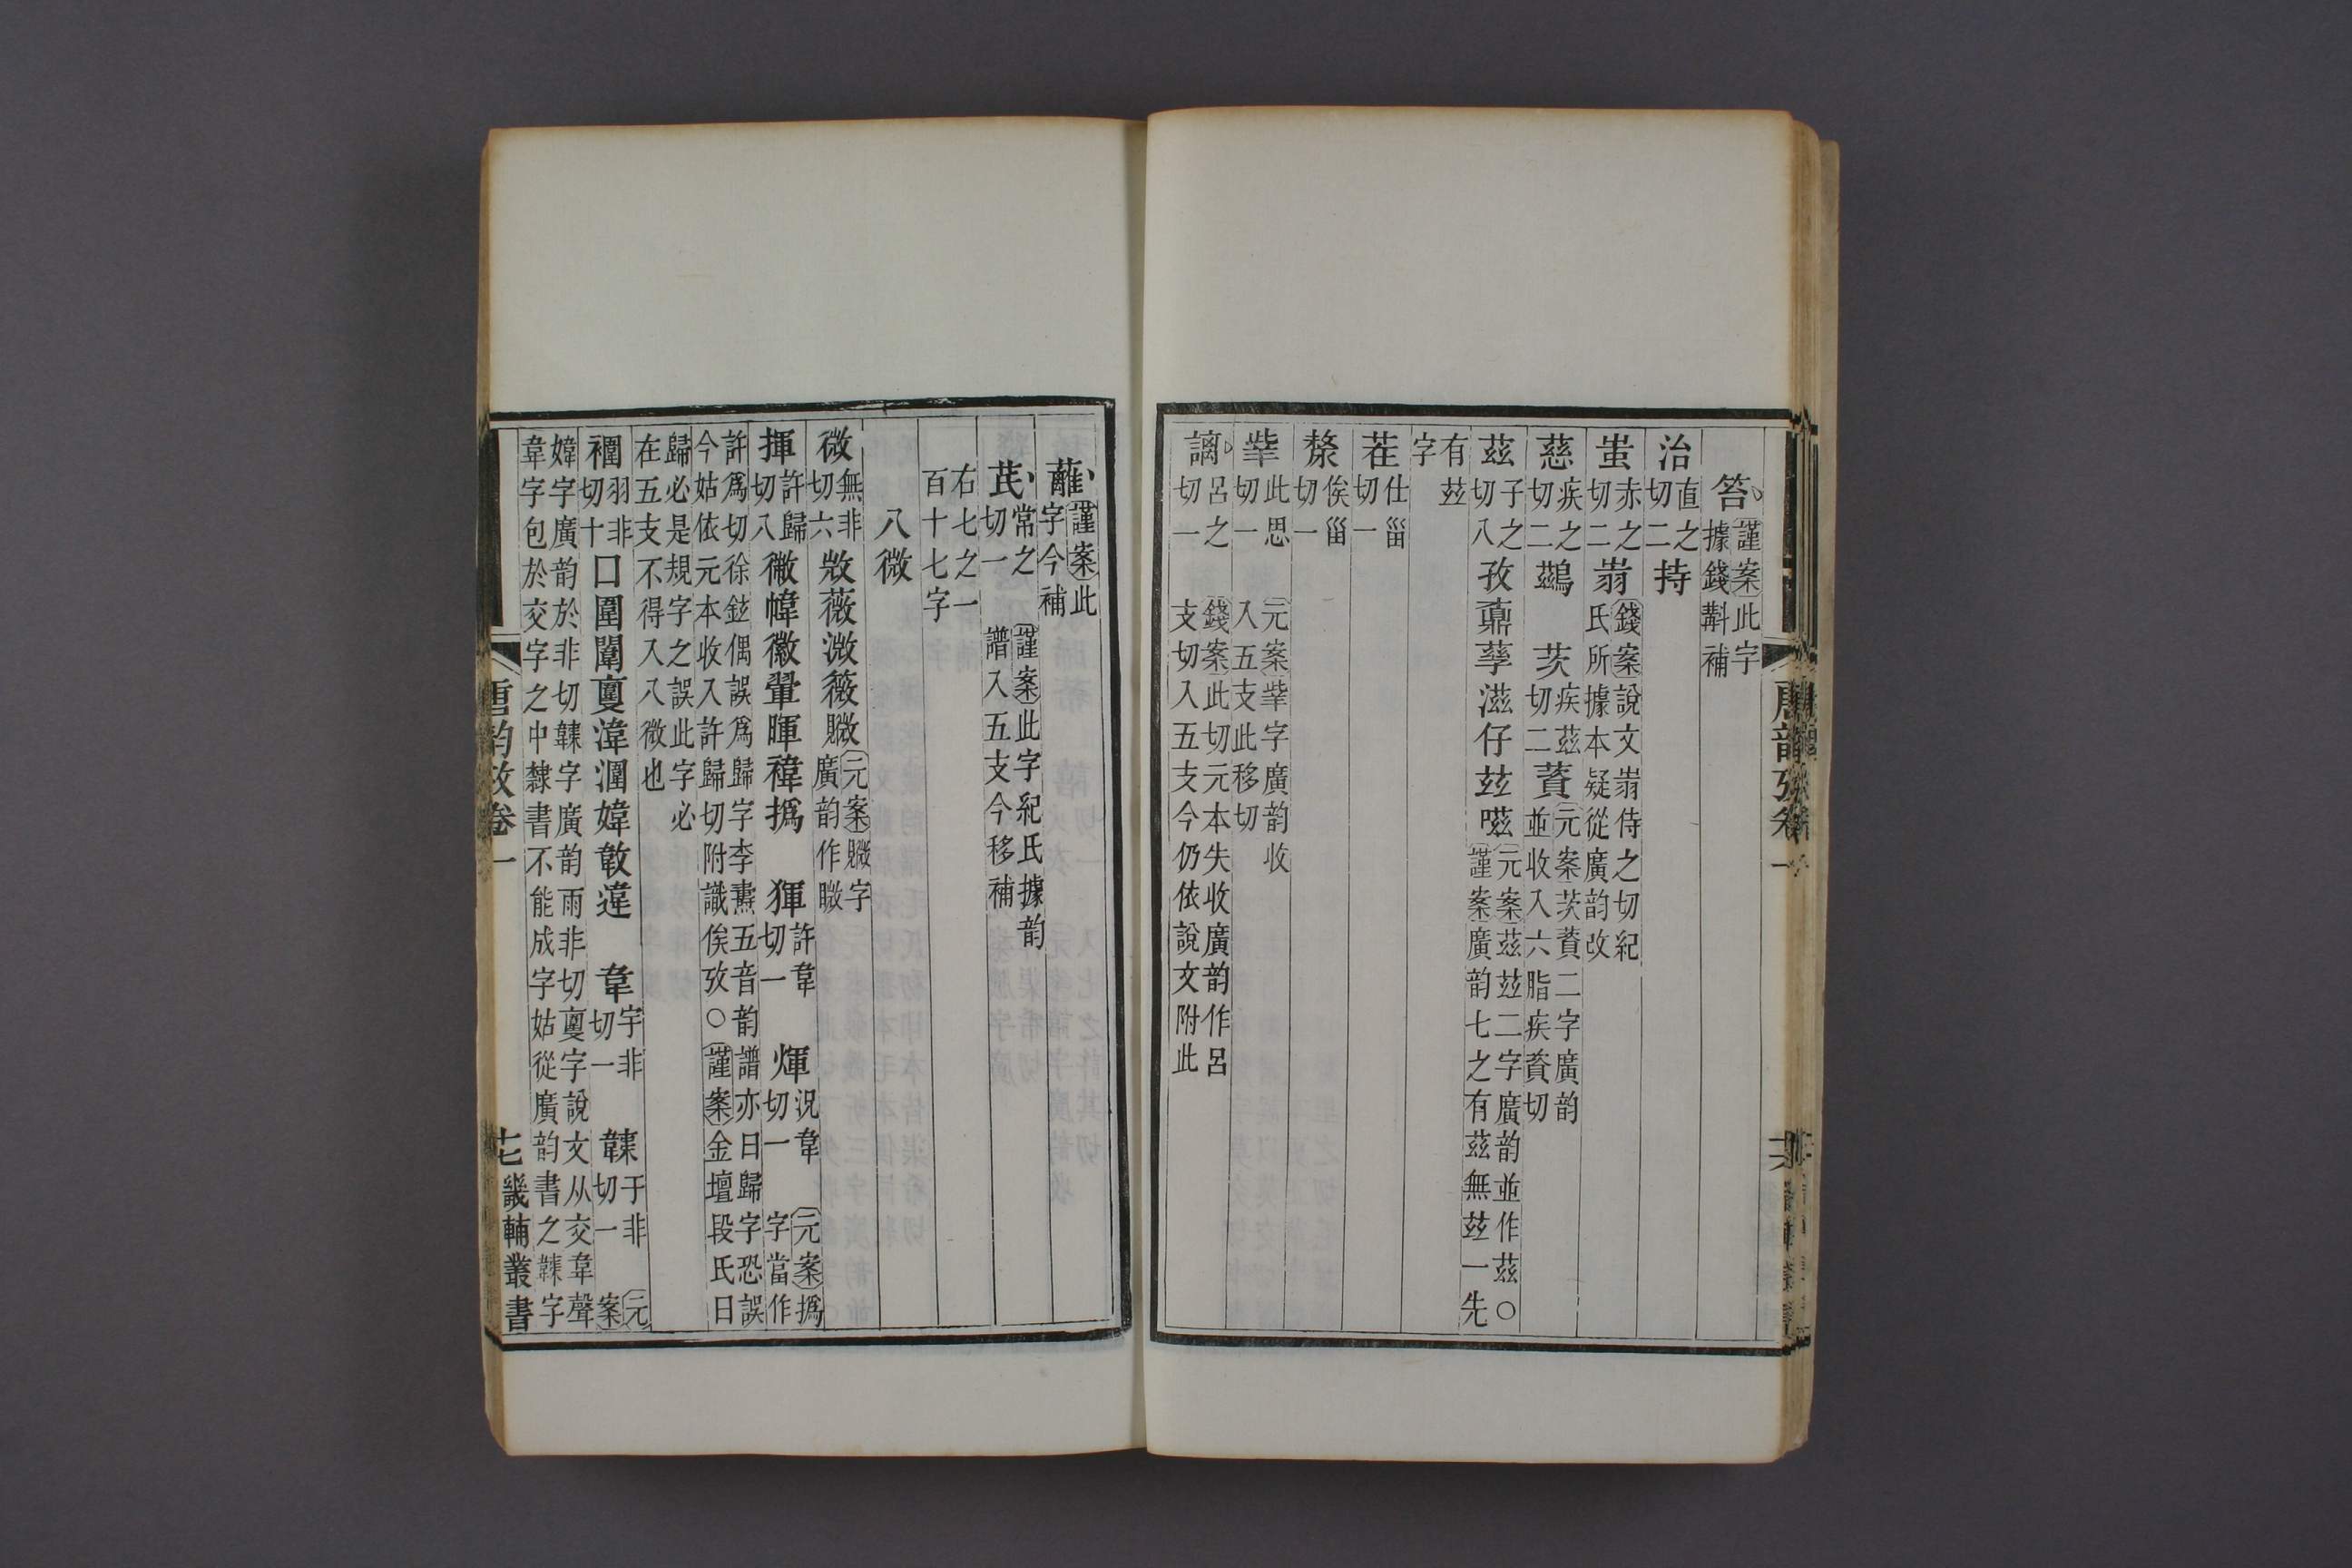 笞 謹案此字據錢斠補
治 直之切二 持
蚩 赤之切二 𦐂 錢案說文𦐂侍之切紀氏所據本疑從廣韵改
慈 疾之切二 鷀 茨 疾茲切二 薋 元案茨薋二字廣韵並收入六脂疾資切
茲 子之切八 孜鼒孳滋仔玆嗞 元案茲玆二字廣韵並作茲○謹案廣韵七之有茲無玆一先
有玆字
茬 仕甾切一
漦 俟甾切一
㧘 此思切一 元案㧘字廣韵收入五支此移切
謧 呂之切一 錢案此切元本失收廣韵作呂支切入五支今仍依說文附此
唐韵攷卷一
蘺 謹案此字今補
茋 常之切一 謹案此字紀氏據韵譜入五支今移補
右七之一百十七字
八微
微 無非切六 𢼸薇溦𧗸覹 元案覹字廣韵作矀
揮 許歸切八 𢕧幃徽翬暉禕撝 㹆 許韋切一 煇 況韋切一 元案撝字當作
許爲切徐鉉偶誤爲歸字李燾五音韵譜亦曰歸字恐誤今姑依元本收入許歸切附識俟攷○謹案金壇段氏曰
歸必是規字之誤此字必在五支不得入八微也
褘 羽非切十 囗圍闈𡕾湋潿媁敼違 韋 宇非切一 𩏑 于非切一 元案
媁字廣韵於非切𩏑字廣韵雨非切𡕾字說文从交韋聲韋字包於交字之中隸書不能成字姑從廣韵書之𩏑字
唐韵攷卷一
十七
畿輔叢書